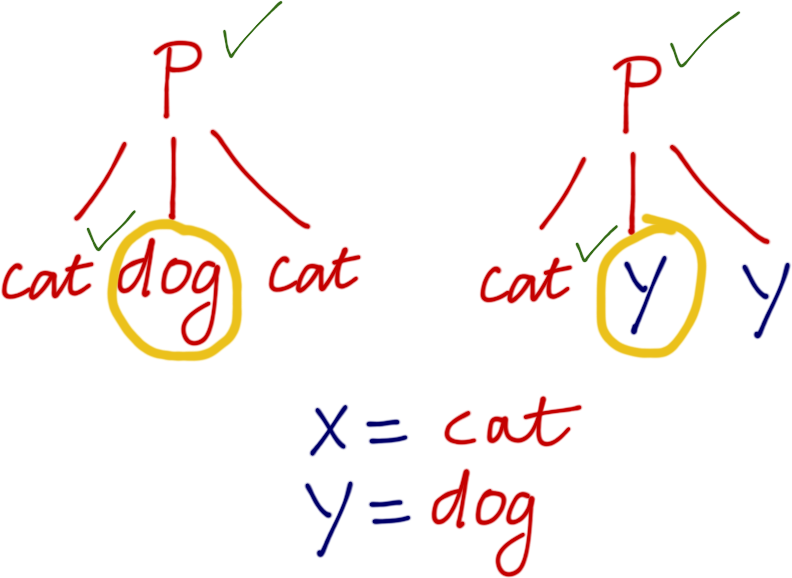 P P
cat dog cat cat Y Y
X = cat
Y = dog